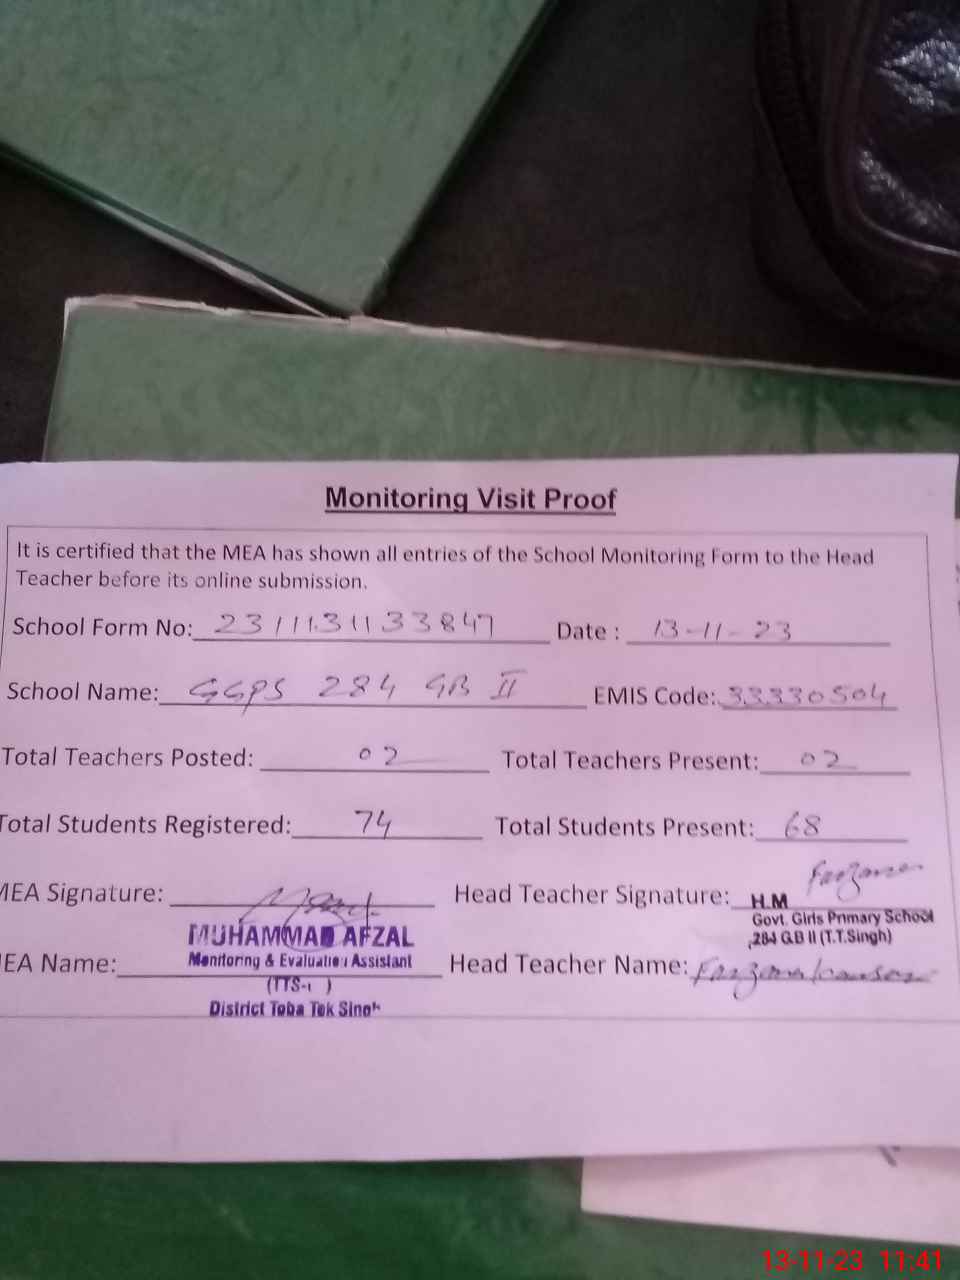 Monitoring Visit Proof
It is certified that the MEA has shown all entries of the School Monitoring Form to the Head
Teacher before its online submission.
School Form No: 2311131133847 Date : 13-11-23
School Name: GGPS 284 GB II EMIS Code: 33330504
Total Teachers Posted: 02 Total Teachers Present: 02
Total Students Registered: 74 Total Students Present: 68
MEA Signature: Head Teacher Signature: Farzana
H.M
Govt. Girls Primary School
284 GB II (T.T.Singh)
MUHAMMAD AFZAL
Monitoring & Evaluation Assistant
MEA Name: Head Teacher Name: Farzana Kausar
District Toba Tek Singh
13-11-23 11:41